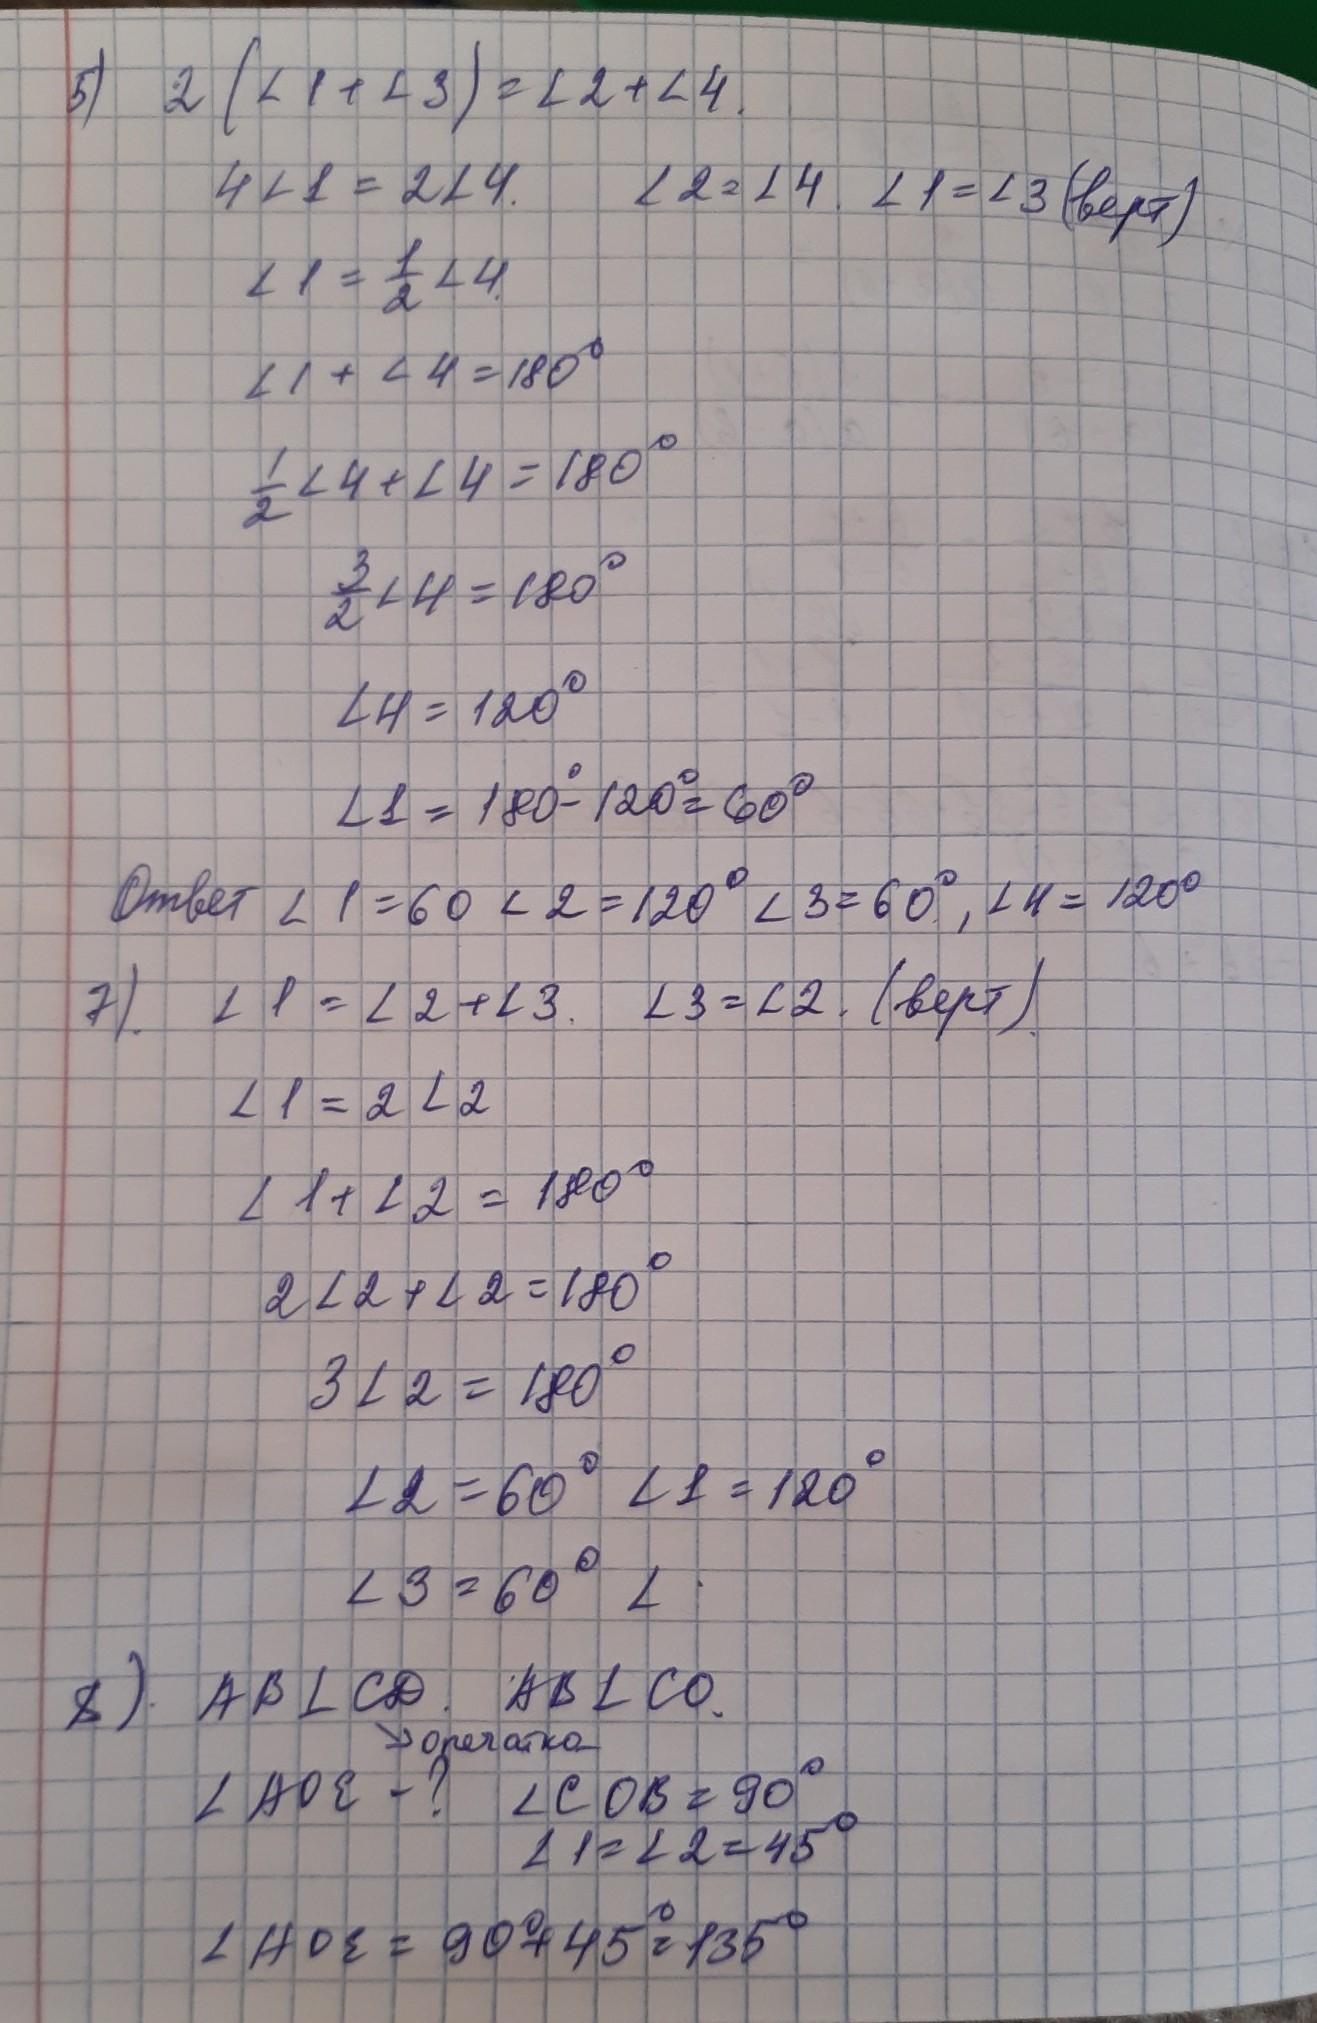 5) 2(∠1+∠3)=∠2+∠4.
4∠1=2∠4. ∠2=∠4. ∠1=∠3(верт)
∠1=1/2∠4.
∠1+∠4=180°
1/2∠4+∠4=180°
3/2∠4=180°
∠4=120°
∠1=180°-120°=60°
Ответ ∠1=60 ∠2=120° ∠3=60°, ∠4=120°
7). ∠1=∠2+∠3. ∠3=∠2. (верт).
∠1=2∠2
∠1+∠2=180°
2∠2+∠2=180°
3∠2=180°
∠2=60° ∠1=120°
∠3=60° ∠
8). AB⊥CD. AB⊥CO.
→опечатка
∠AOE-? ∠COB=90°
∠1=∠2=45°
∠AOE=90°+45°=135°